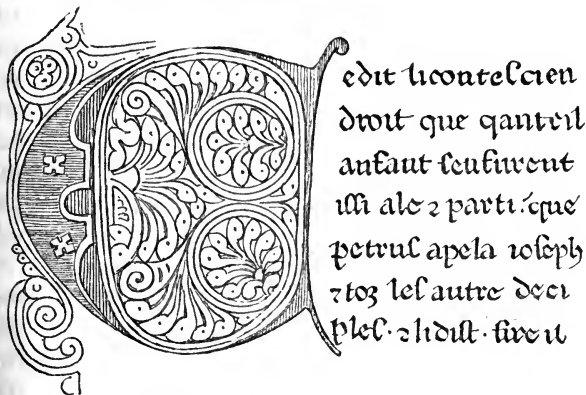 Cedit liconteſcien
droit que qantcil
anfant ſenfurent
iſſi ale ⁊ parti. que
petruſ apela ioſeph
⁊toz leſ autre deci
pleſ·⁊lidiſt·ſire il